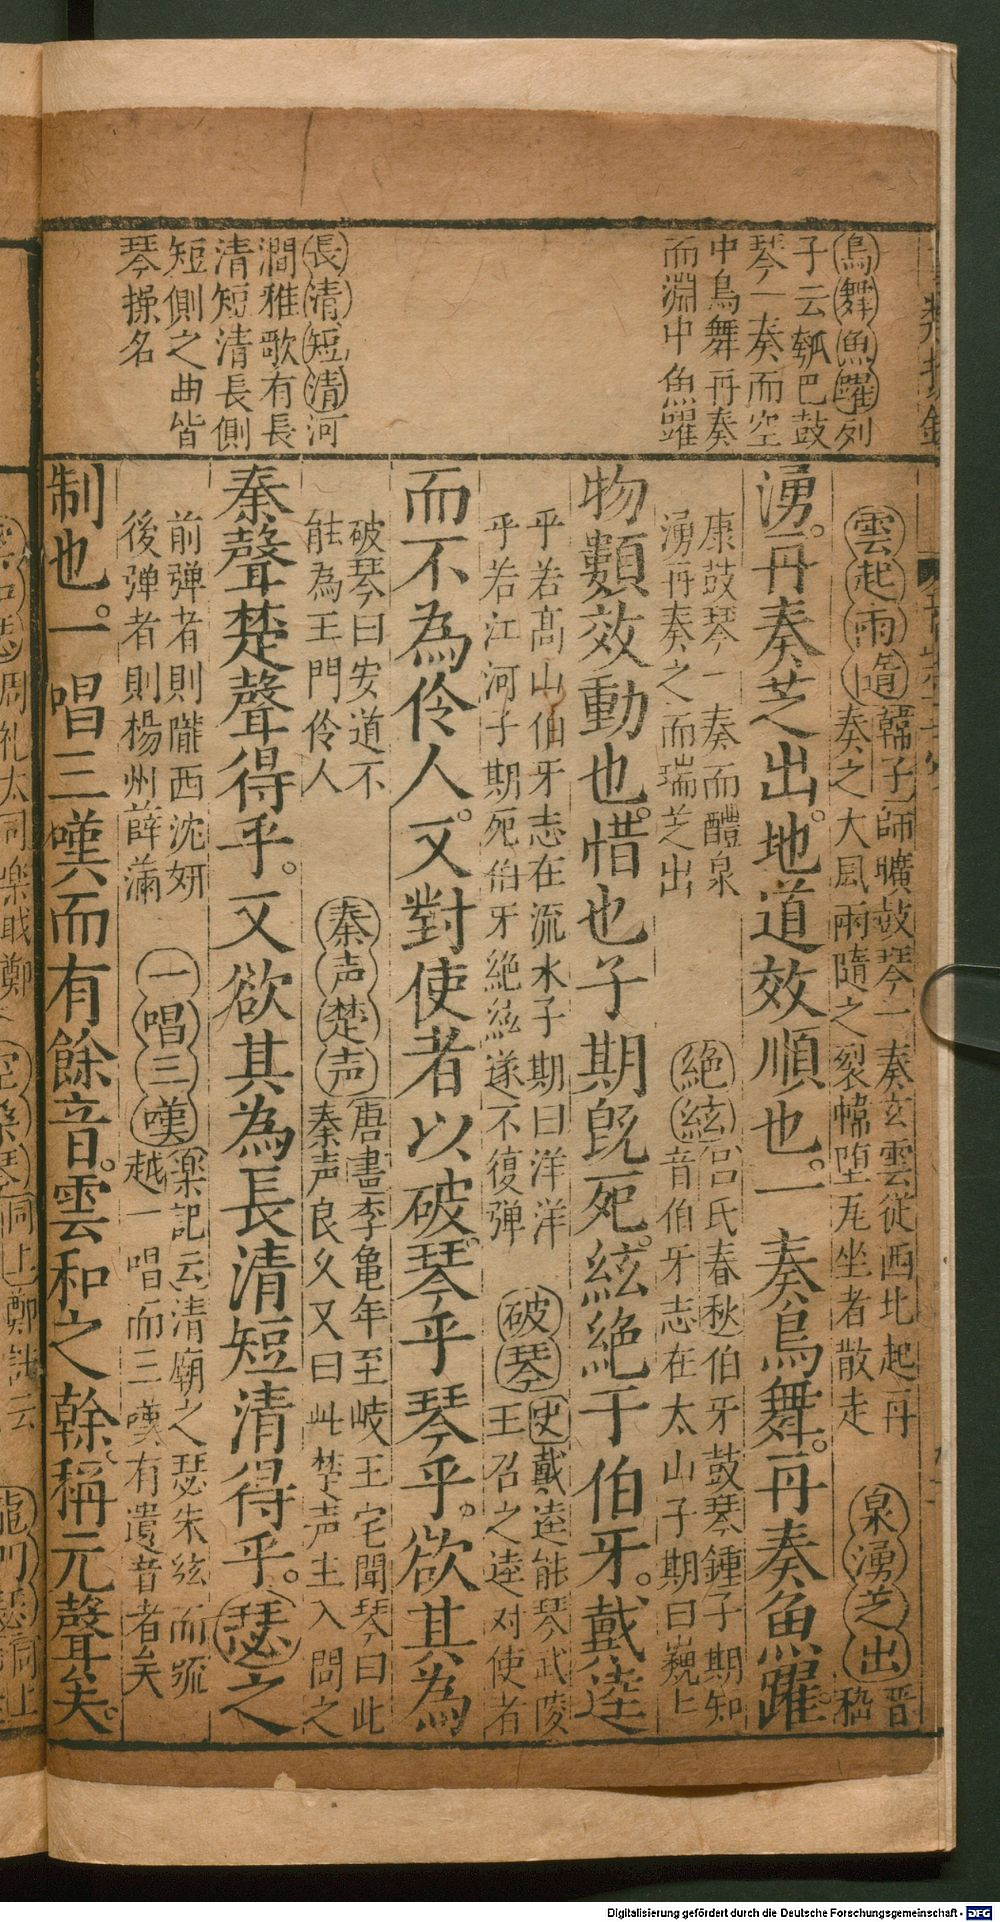 鳥舞魚躍列
子云瓠巴鼓
琴一奏而空
中鳥舞再奏
而淵中魚躍
長清短清河
澗雅歌有長
清短清長側
短側之曲皆
琴操名
雲起雨隨韓子師曠鼓琴一奏玄雲從西北起再
奏之大風雨隨之裂幃堕瓦坐者散走
泉湧芝出晋
嵇
湧。再奏芝出。地道效順也。一奏鳥舞。再奏魚躍
康鼓琴一奏而醴泉
湧再奏之而瑞芝出
絶絃呂氏春秋伯牙鼓琴鍾子期知
音伯牙志在太山子期曰巍上
物類效動也。惜也子期旣死。絃絶于伯牙。戴逵
乎若高山伯牙志在流水子期曰洋洋
乎若江河子期死伯牙絶絃遂不復弹
破琴史戴逵能琴武陵
王召之逵对使者
而不為伶人。又對使者以破琴乎琴乎。欲其為
破琴曰安道不
能為王門伶人
秦声楚声唐書李亀年至岐王宅聞琴曰此
秦声良久又曰此楚声主入問之
秦聲楚聲得乎。又欲其為長清短清得乎。瑟之
前弹者則隴西沈妍
後弹者則楊州薛滿
一唱三嘆楽記云清廟之瑟朱絃而疏
越一唱而三嘆有遺音者矣
制也。一唱三嘆而有餘音。雲和之幹稱元聲矣。
Digitalisierung gefördert durch die Deutsche Forschungsgemeinschaft - DFG